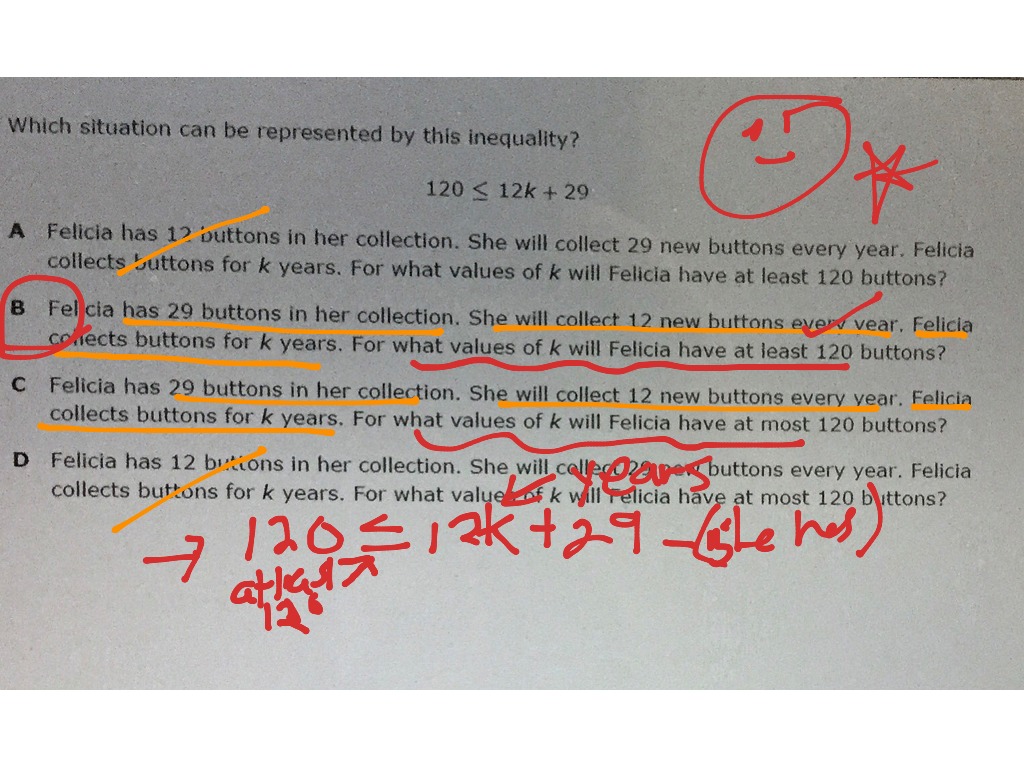 Which situation can be represented by this inequality?
120 ≤ 12k + 29
A Felicia has 12 buttons in her collection. She will collect 29 new buttons every year. Felicia
collects buttons for k years. For what values of k will Felicia have at least 120 buttons?
B Felicia has 29 buttons in her collection. She will collect 12 new buttons every year. Felicia
collects buttons for k years. For what values of k will Felicia have at least 120 buttons?
C Felicia has 29 buttons in her collection. She will collect 12 new buttons every year. Felicia
collects buttons for k years. For what values of k will Felicia have at most 120 buttons?
D Felicia has 12 buttons in her collection. She will collect 29 new buttons every year. Felicia
collects buttons for k years. For what values of k will Felicia have at most 120 buttons?
years
→ 120 ≤ 12k + 29 – (she has)
at least
120